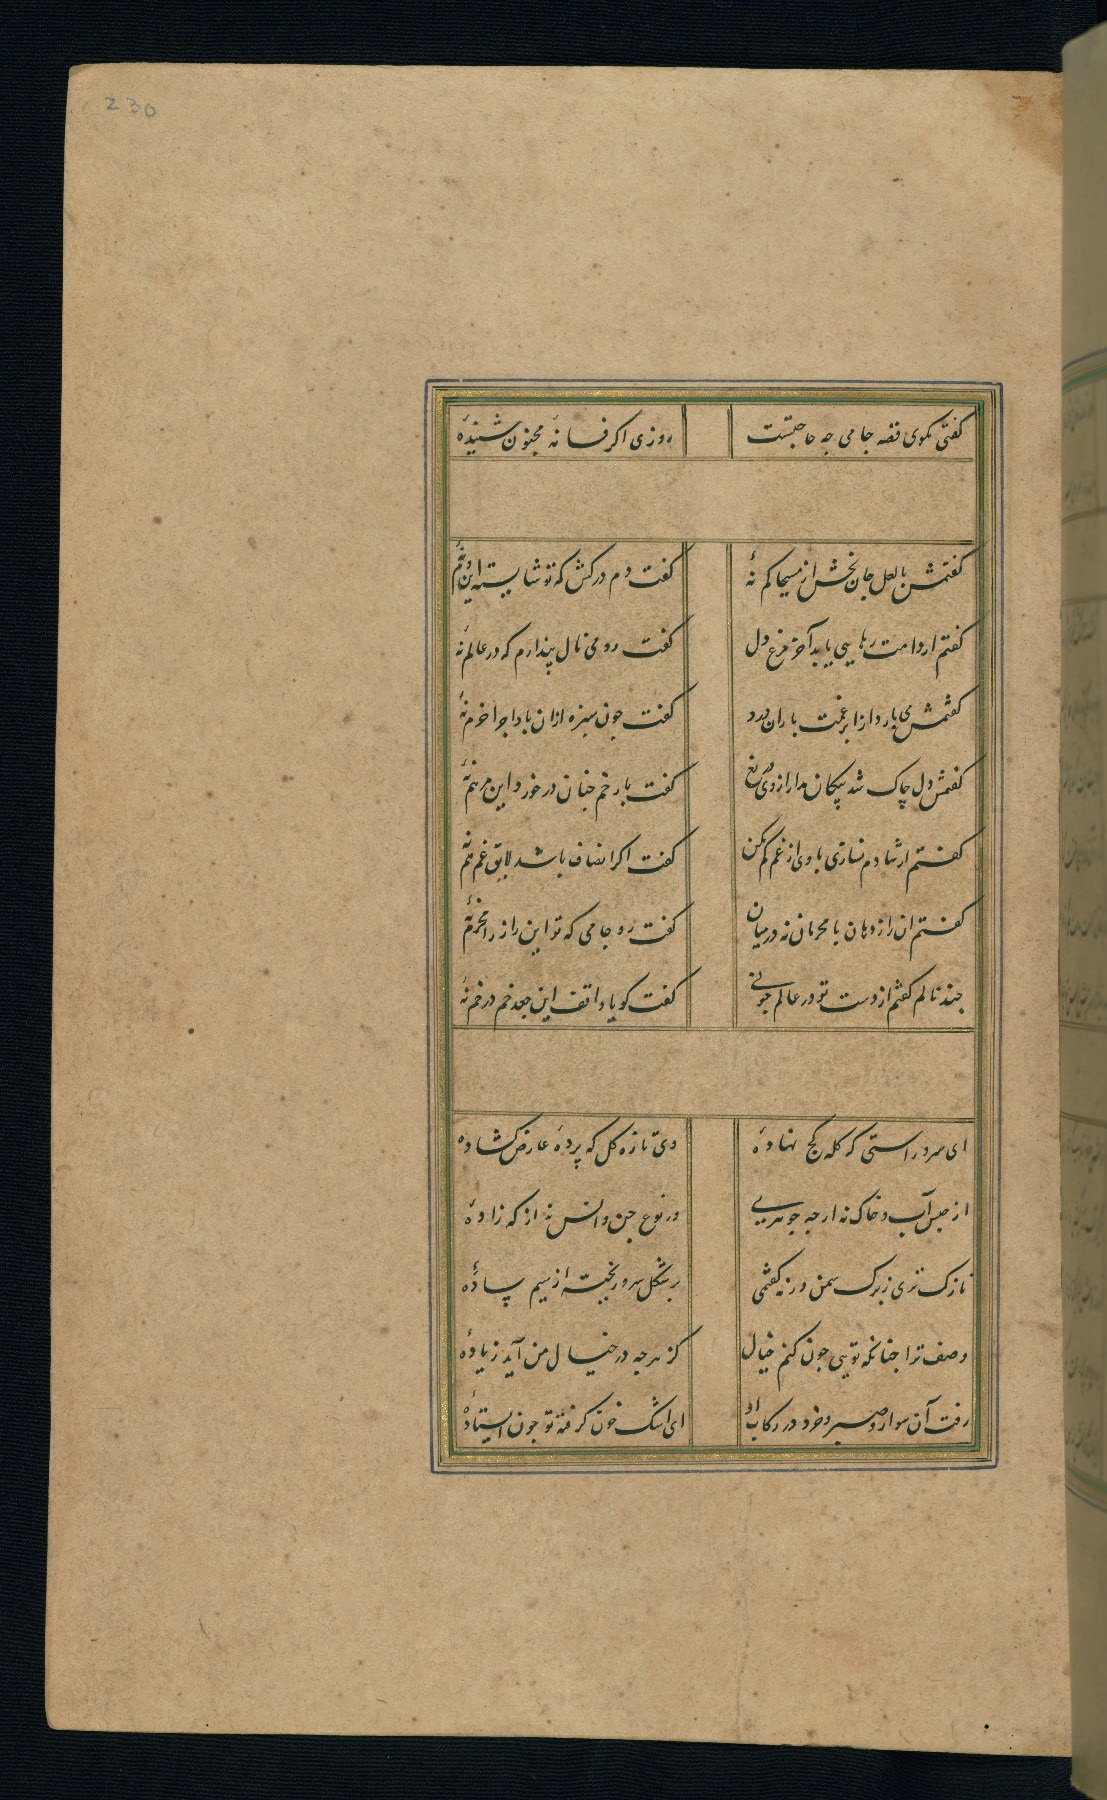 230
کفتی مکوی قصه جامی چه حاجتست روزی اکر فسانهٔ مجنون شنیدهٔ
کفتمش با لعل جان بخش از مسیحا کم نهٔ کفت دم درکش که تو شایسته این دم نهٔ
کفتم از دامت رهایی یابد آخر مرغ دل کفت رو می نال پندارم که در عالم نهٔ
کفتمش می بارد از ابر غمت باران درد کفت چون سبزه ازان باد اجرا خرم نهٔ
کفتمش دل چاک شد پیکان مدار از وی دریغ کفت با زخم چنان در خورد این مرهم نهٔ
کفتم ار شادم نسازی باری از غم کم مکن کفت اکر انصاف باشد لایق غم هم نهٔ
کفتم ان راز دهان با محرمان نه در میان کفت رو جامی که تو این راز را محرم نهٔ
چند نالم کفتم از دست تو در عالم چو نی کفت کویا واقف این جعد خم در خم نهٔ
ای سرو راستی که کله کج نهادهٔ وی تازه کل که پردهٔ عارض کشادهٔ
از جنس آب و خاک نهٔ از چه جوهریی در نوع جن و انس نهٔ از که زادهٔ
نازک تری ز برک سمن ورنه کفتمی بر شکل سرو ریختهٔ از سیم سادهٔ
وصف ترا چنانکه تویی چون کنم خیال کز هرچه در خیال من آید زیادهٔ
رفت آن سوار و صبر و خرد در رکاب او ای اشک خون کرفته تو چون ایستادهٔ